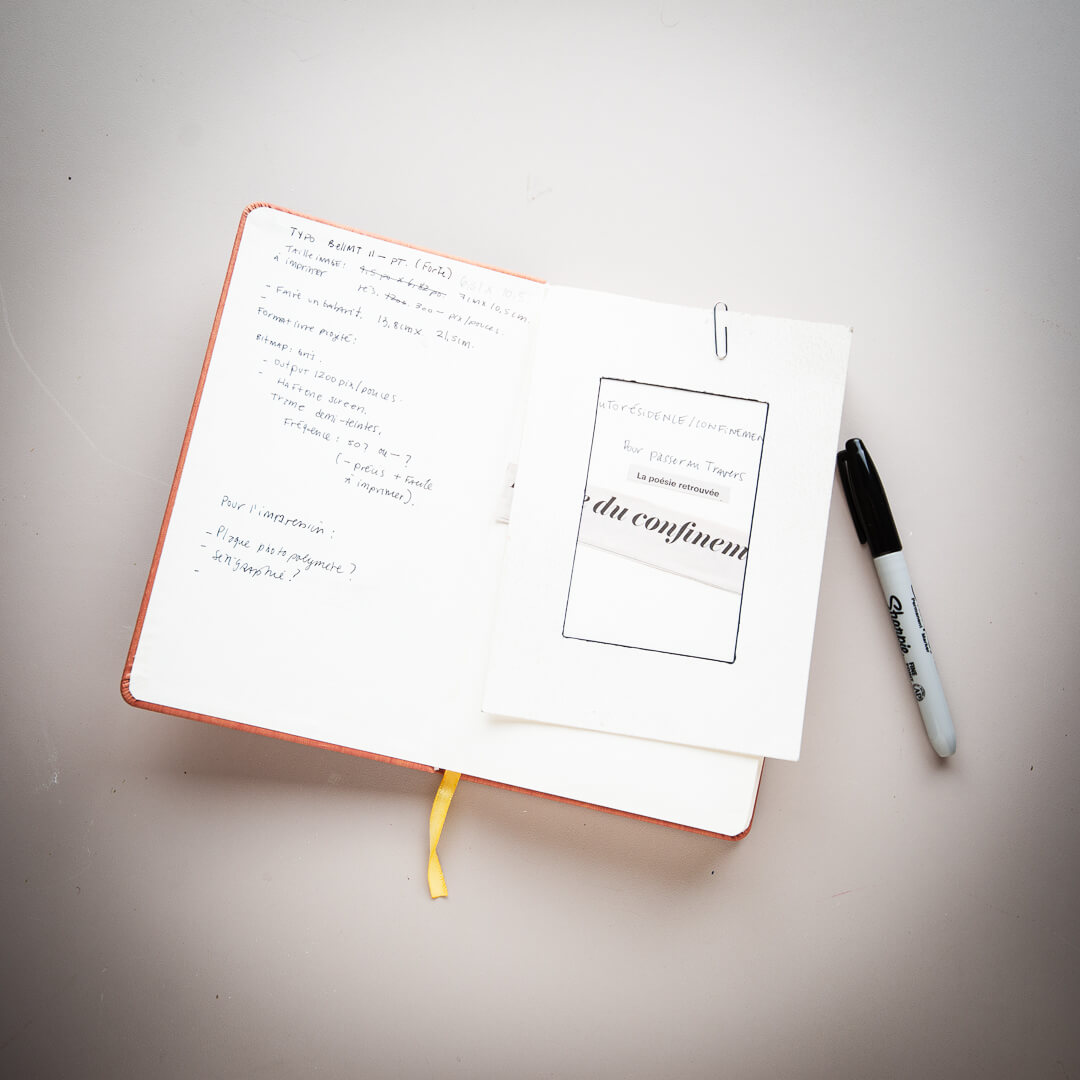 TYPO BellMT 11 – PT. (Forte)
TAILLE IMAGE: 4,5 po x 6,82 po. 6,81 x 10,5
à imprimer 7cm x 10,5cm.
rés. 1200. 300 – pix/pouces.
- Faire un gabarit.
-
Format livre projeté: 13,8cm x 21,5cm.
BITMAP:
- OUTPUT 1200 pix/pouces.
- HaFtone screen.
Trame demi-teintes.
Fréquence: 50? ou – ?
(– précis + facile
à imprimer).
Pour l'impression:
- Plaque photopolymère?
- Sérigraphie?
-
UTORÉSIDENCE/CONFINEMEN
Pour passer au Travers
La poésie retrouvée
e du confinem
Sharpie
Permanent Marker
FINE
AP